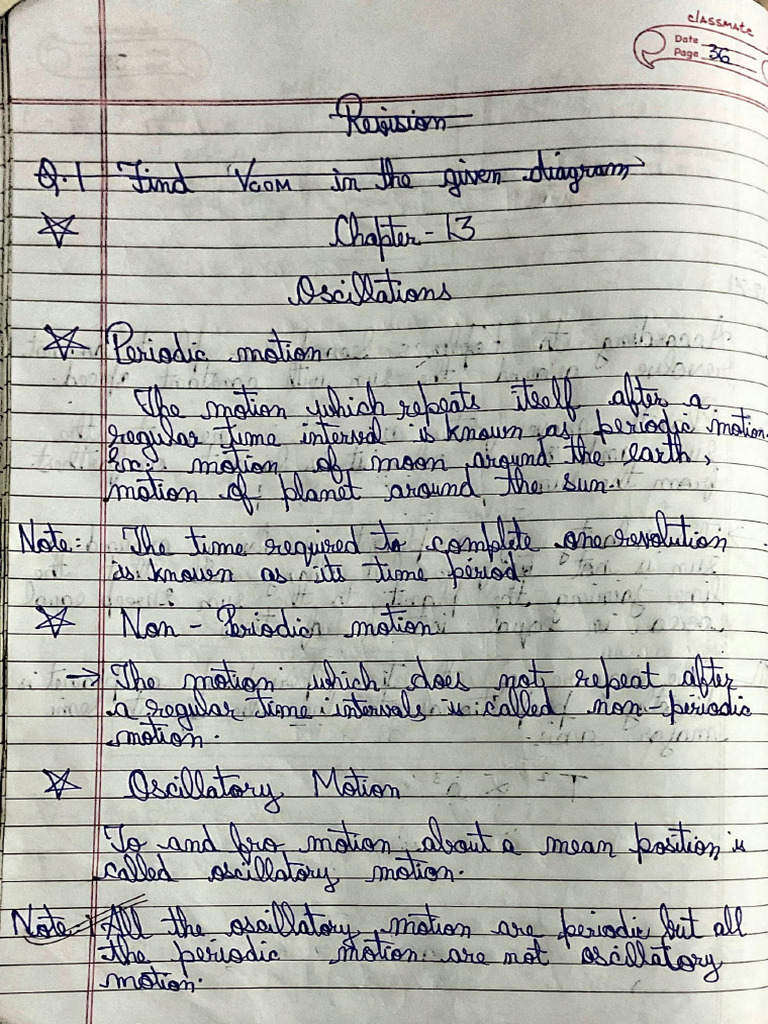 classmate
Date
Page 36
Revision
Q.1 Find VCOM in the given diagram
Chapter - 13
Oscillations
Periodic motion
The motion which repeats itself after a
regular time interval is known as periodic motion.
Ex: motion of moon around the earth,
motion of planet around the sun.
Note: The time required to complete one revolution
is known as its time period.
Non - Periodic motion
→ The motion which does not repeat after
a regular time intervals is called non-periodic
motion.
Oscillatory Motion
To and fro motion about a mean position is
called oscillatory motion.
Note: All the oscillatory motion are periodic but all
the periodic motion are not oscillatory
motion.